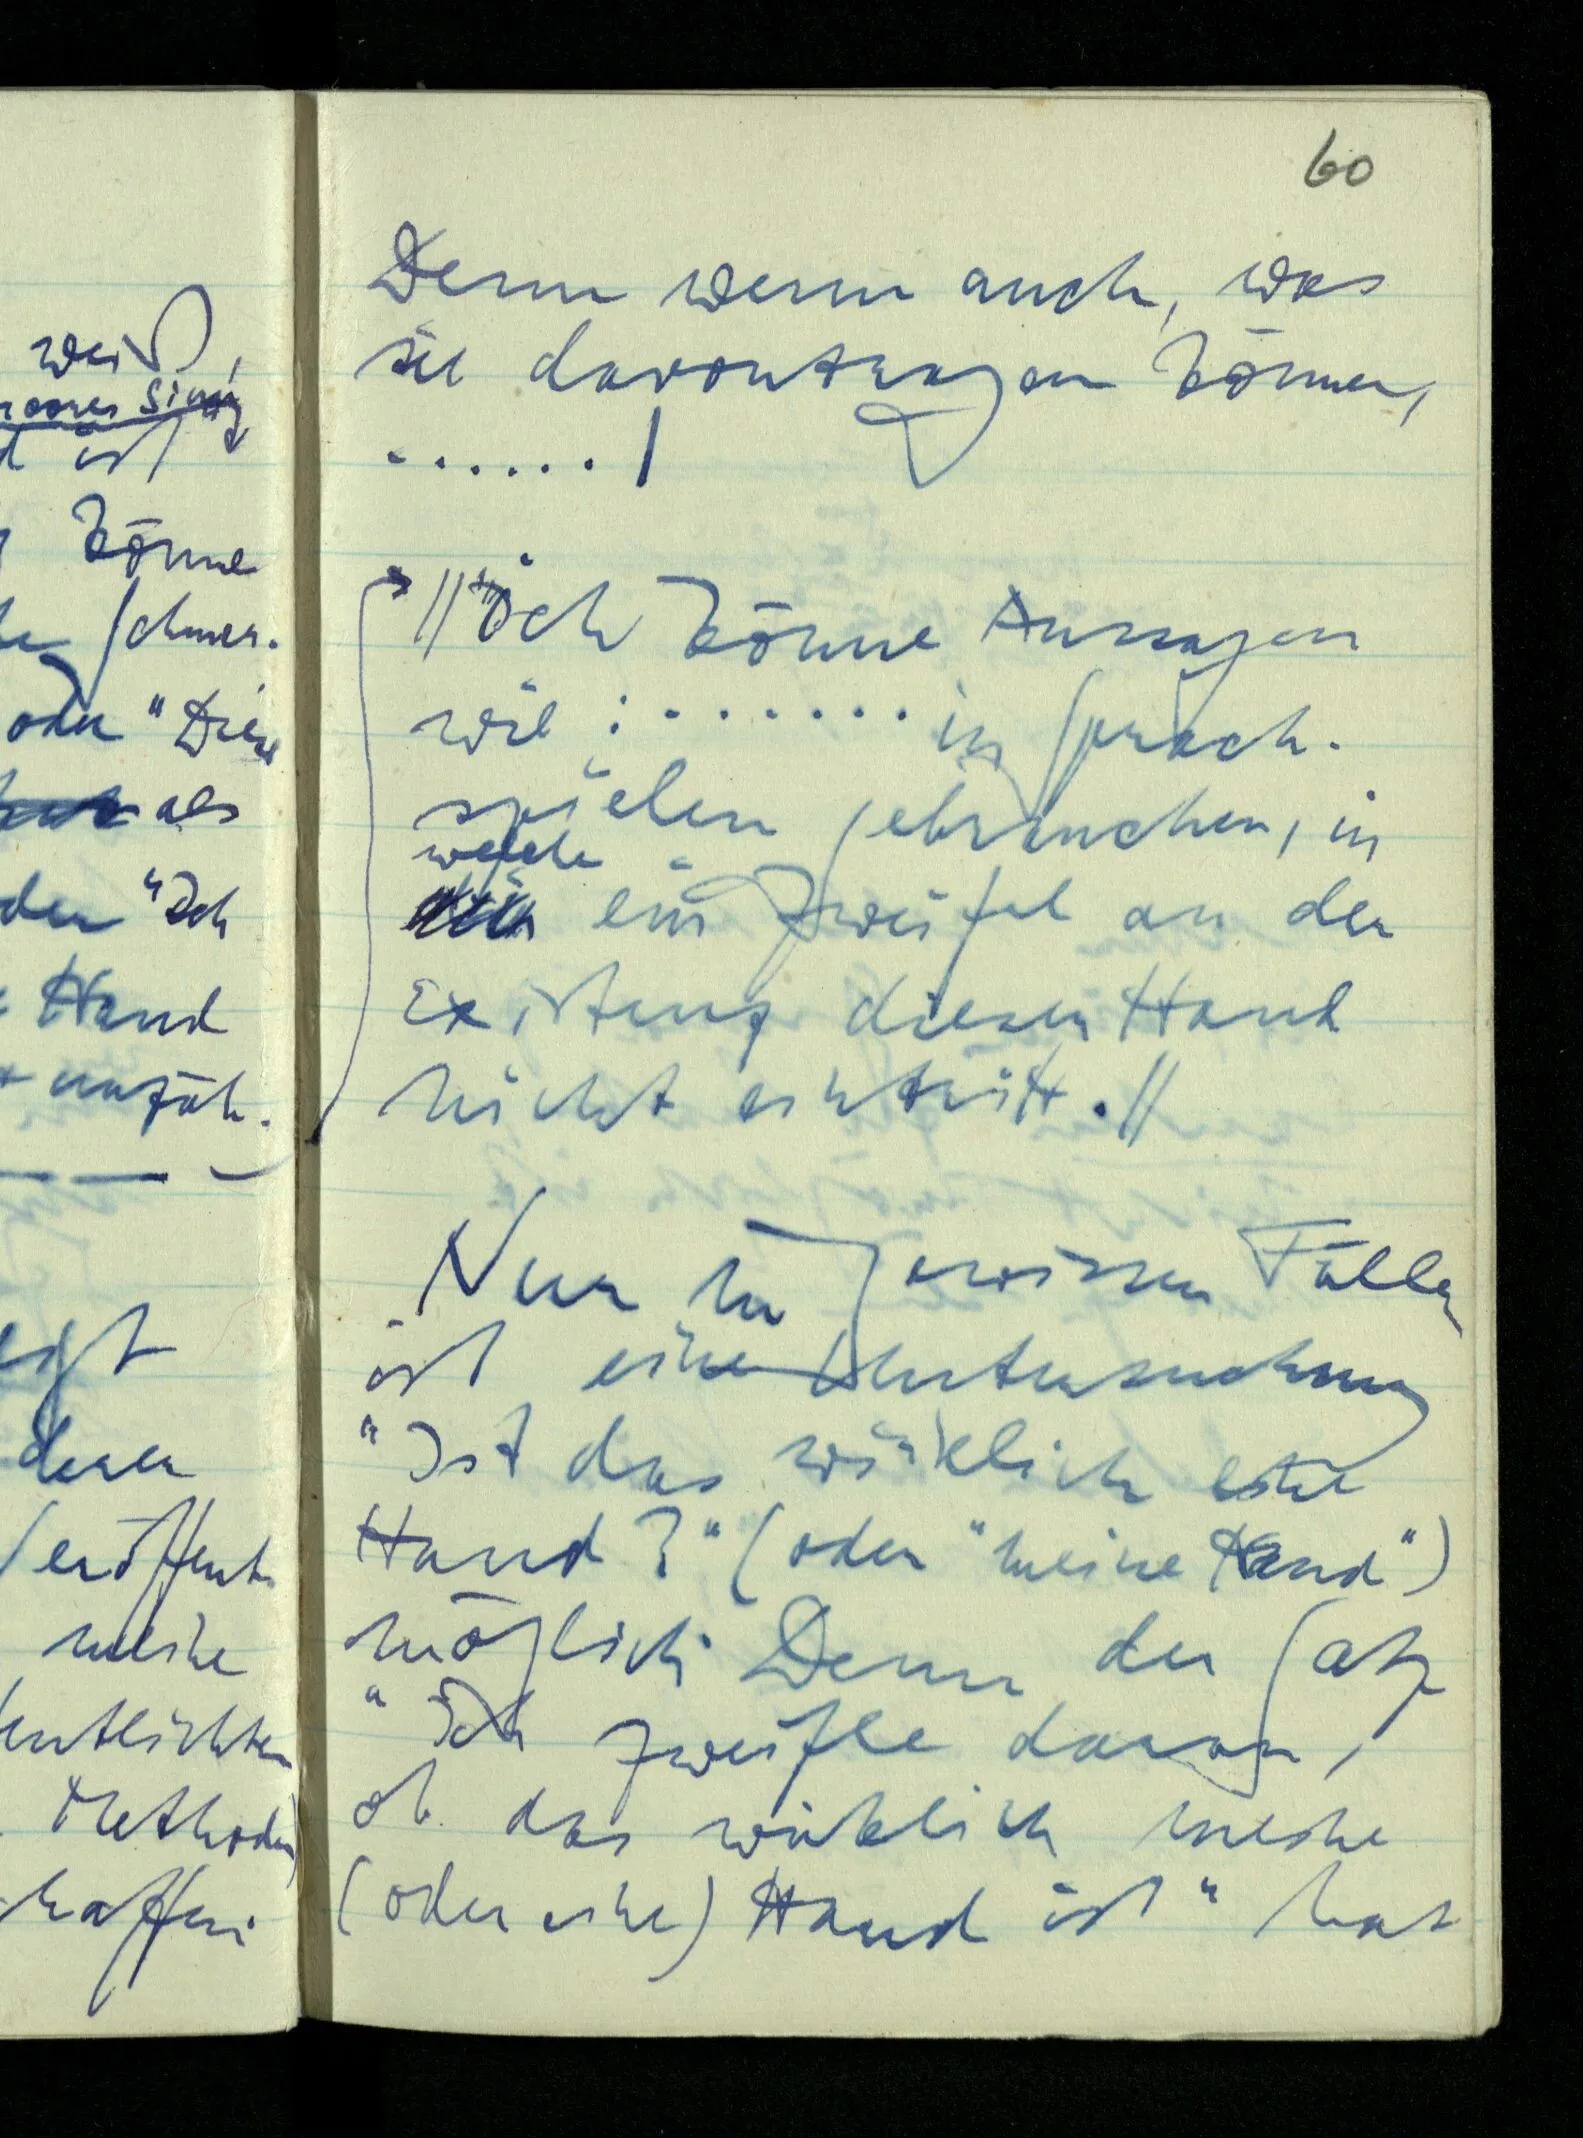 weiß,
ist
könne
Schmer-
oder "Diese
als
oder "Ich
Hand
unfäh-
deren
Veröffent-
meine
Methoden
60
Denn wenn auch, was
sie davontragen können,
......!
//"Ich könne Aussagen
wie: ....... in Sprach-
spielen gebrauchen, in
welche
ein Zweifel an der
Existenz dieser Hand
nicht eintritt.//
Nur in gewissen Fällen
ist eine Untersuchung
"Ist das wirklich eine
Hand?" (oder "meine Hand")
möglich. Denn der Satz
"Ich zweifle daran,
ob das wirklich meine
(oder eine) Hand ist" hat